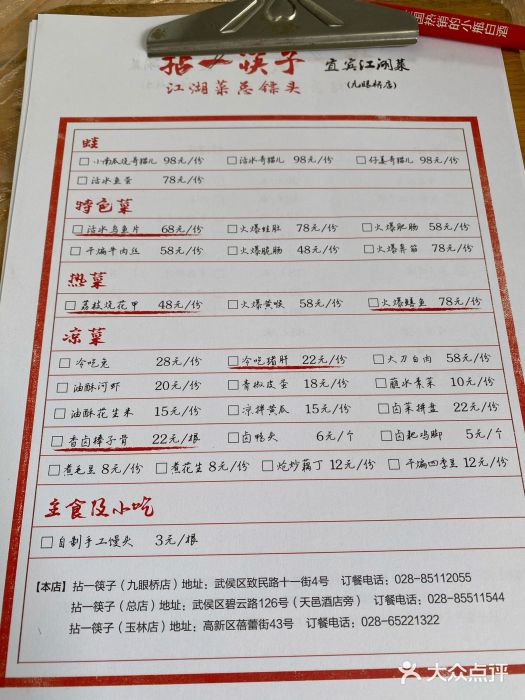 全国热销的小瓶白酒
拈一筷子 宜宾江湖菜
江湖菜总馆头 (九眼桥店)
蛙
□小南瓜烧哥猫儿 98元/份 □活水哥猫儿 98元/份 □仔姜哥猫儿 98元/份
□活水鱼蛋 78元/份
特色菜
□活水乌鱼片 68元/份 □火爆蛙肚 78元/份 □火爆肥肠 58元/份
□干煸牛肉丝 58元/份 □火爆脆肠 48元/份 □火爆鼻筋 78元/份
热菜
□荔枝烧花甲 48元/份 □火爆黄喉 58元/份 □火爆鳝鱼 78元/份
凉菜
□冷吃兔 28元/份 □冷吃猪肝 22元/份 □大刀白肉 58元/份
□油酥河虾 20元/份 □青椒皮蛋 18元/份 □蘸水素菜 10元/份
□油酥花生米 15元/份 □凉拌黄瓜 15元/份 □卤菜拼盘 22元/份
□香卤棒子骨 22元/根 □卤鸭头 6元/个 □卤粑鸡脚 5元/个
□煮毛豆 8元/份 □煮花生 8元/份 □炝炒藕丁 12元/份 □干煸四季豆 12元/份
主食及小吃
□自制手工馒头 3元/根
【本店】拈一筷子（九眼桥店）地址：武侯区致民路十一街4号 订餐电话：028-85112055
拈一筷子（总店）地址：武侯区碧云路126号（天邑酒店旁） 订餐电话：028-85511544
拈一筷子（玉林店）地址：高新区蓓蕾街43号 订餐电话：028-65221322
大众点评